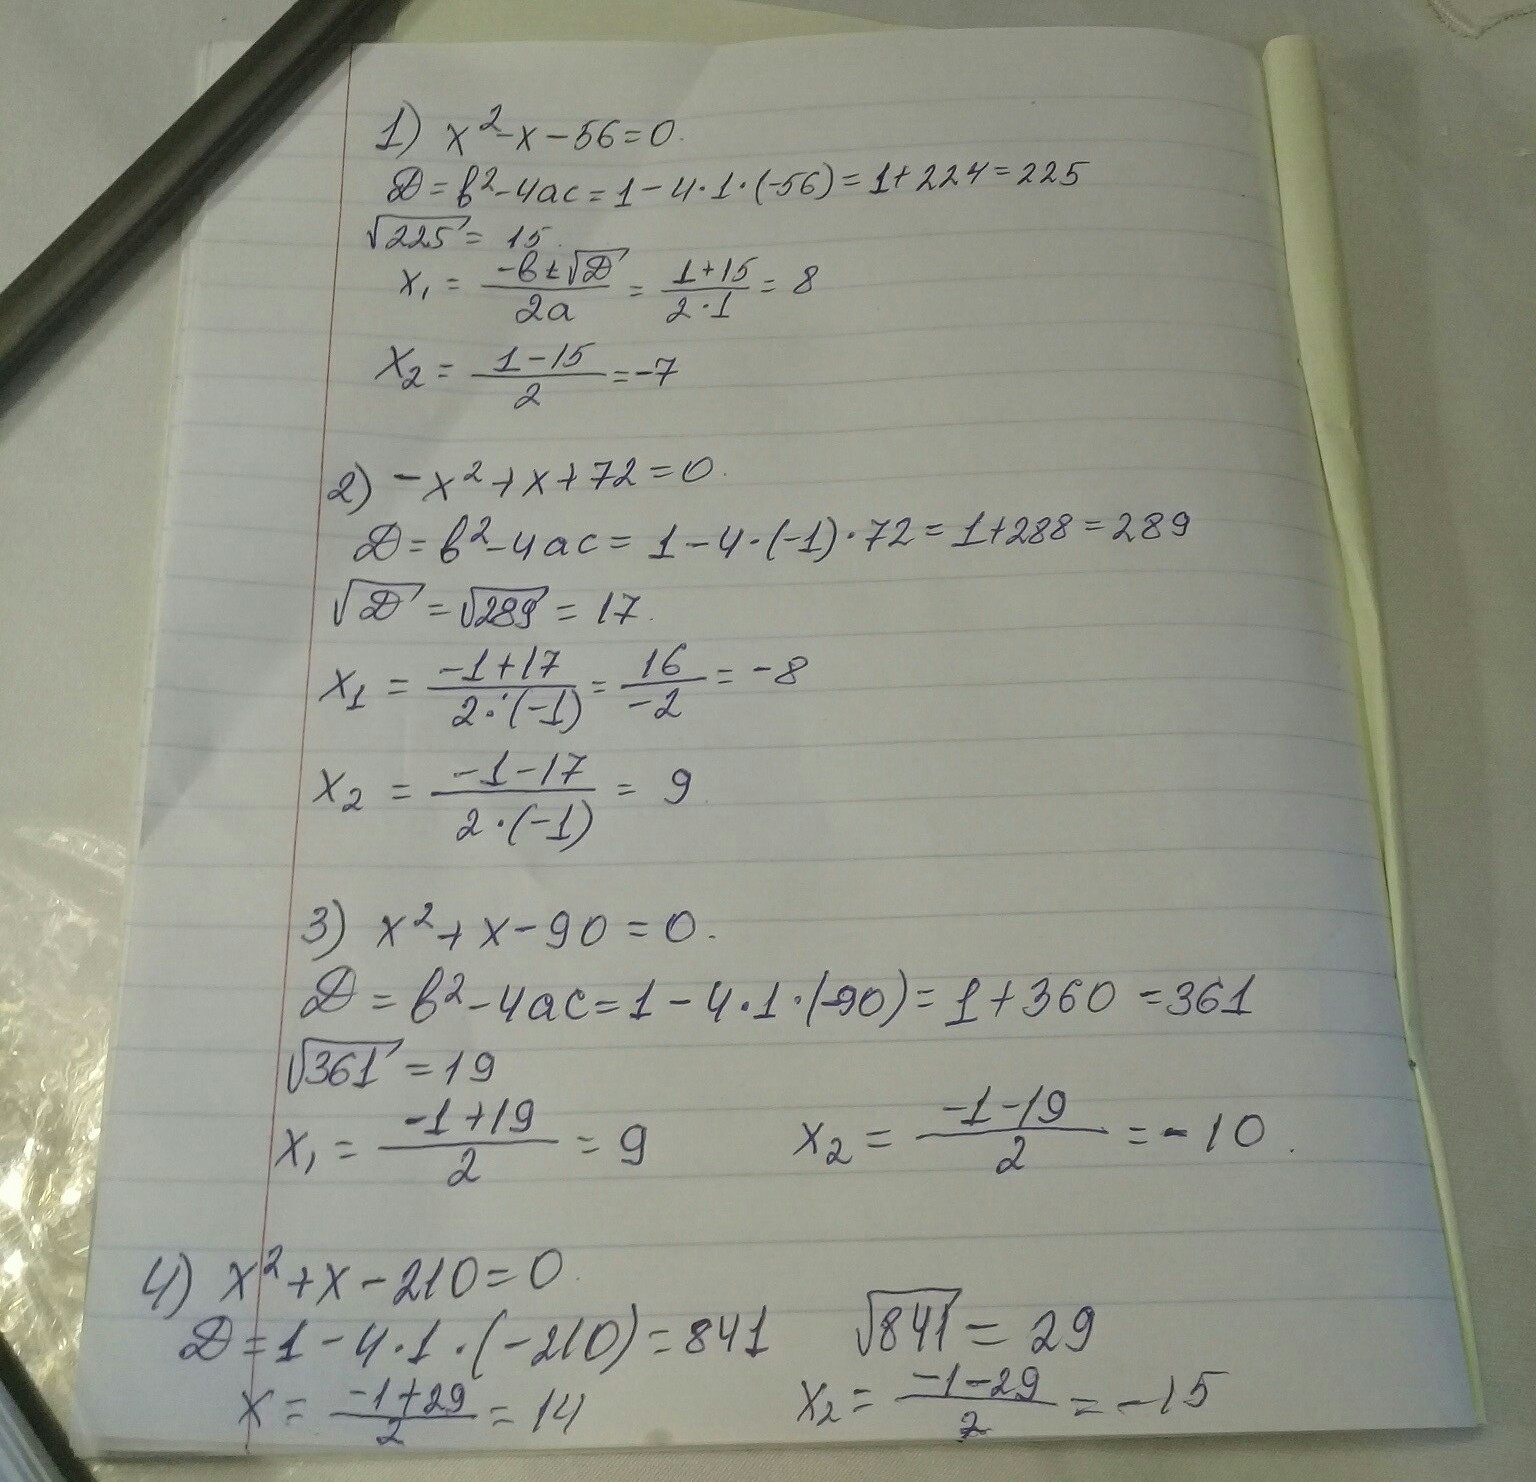 1) x²-x-56=0.
D=b²-4ac=1-4·1·(-56)=1+224=225
√225=15.
x₁ = (-b±√D)/2a = (1+15)/(2·1) = 8
x₂ = (1-15)/2 = -7
2) -x²+x+72=0.
D=b²-4ac=1-4·(-1)·72=1+288=289
√D=√289=17.
x₁ = (-1+17)/(2·(-1)) = 16/-2 = -8
x₂ = (-1-17)/(2·(-1)) = 9
3) x²+x-90=0.
D=b²-4ac=1-4·1·(-90)=1+360=361
√361=19
x₁ = (-1+19)/2 = 9 x₂ = (-1-19)/2 = -10.
4) x²+x-210=0.
D=1-4·1·(-210)=841 √841=29
x = (-1+29)/2 = 14 x₂ = (-1-29)/2 = -15